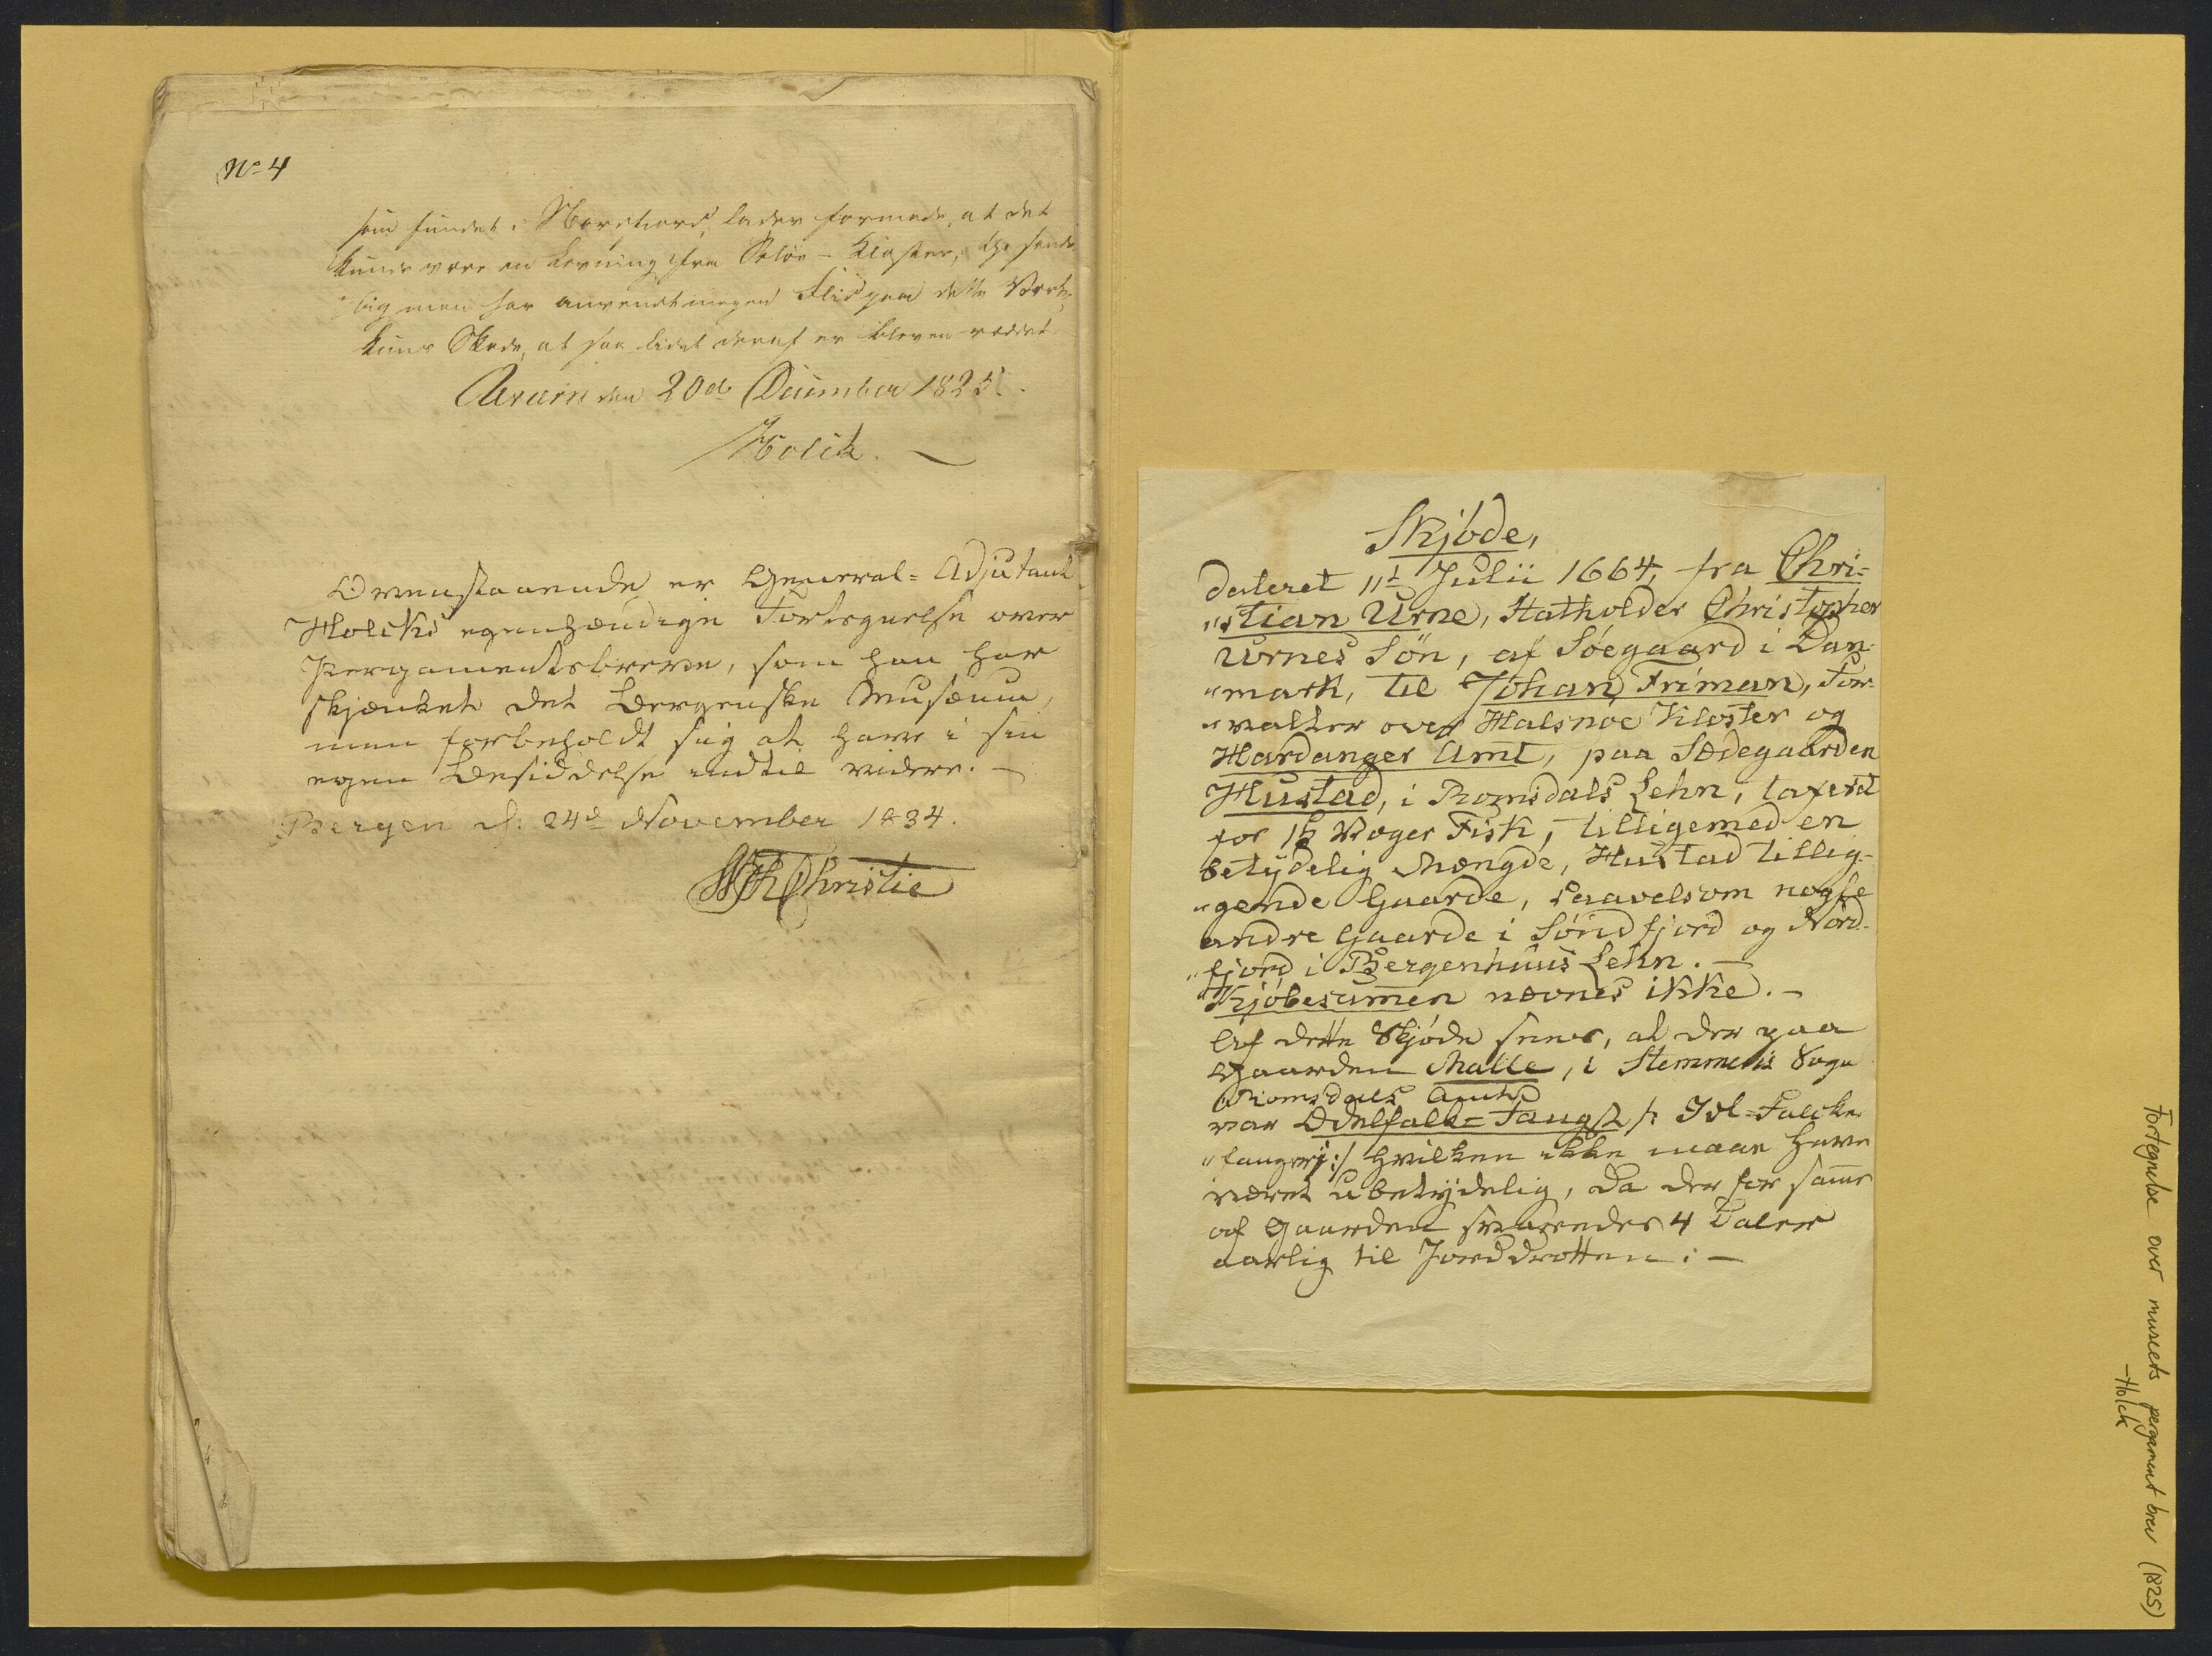 No 4
som fundet i Nordfiord, lader formode, at det
kunde være en Levning fra Selöe-Kloster,
man har anvendt megen Flid paa dette
kuns Skade, at saa lidet deraf er bleven reddet
Aarien den 20de December 1825.
Holck.
Ovenstaaende er General-Adjutant
Holcks egenhændige Fortegnelse over
Pergamentsbreve, som han har
skjænket det Bergenske Musæum,
men forbeholdt sig at have i sin
egen Besiddelse indtil videre. —
Bergen d: 24de November 1834.
WFKChristie
Skjöde,
dateret 11t Julii 1664, fra Chri=
"stian Urne, Statholder Christopher
Urnes Sön, af Söegaard i Dan-
"mark, til Johan Friman, For-
"valter over Halsnoe Kloster og
Hardanger Amt, paa Sædegaarden
Hustad, i Romsdals Lehn, taxeret
for Woger Fisk, tilligemed en
betydelig Mængde, Hustad tillig-
"gende Gaarde, saavelsom nogle
andre Gaarde i Söndfjord og Nord-
"fjord i Bergenhuus Lehn. —
Kjöbesummen nævnes ikke. —
Af dette Skjöde sees, at der paa
Gaarden Malle, i Stemmens Sogn
Romsdals Amt
var Ædelfalk-Fangst /: Falcke
"fangeri:/ hvilken ikke maae have
været ubetydelig, da der for samme
af Gaarden svaredes 4 Daler
aarlig til Jorddrotten. —
Fortegnelse over museets pergament brev (1825)
-Holck